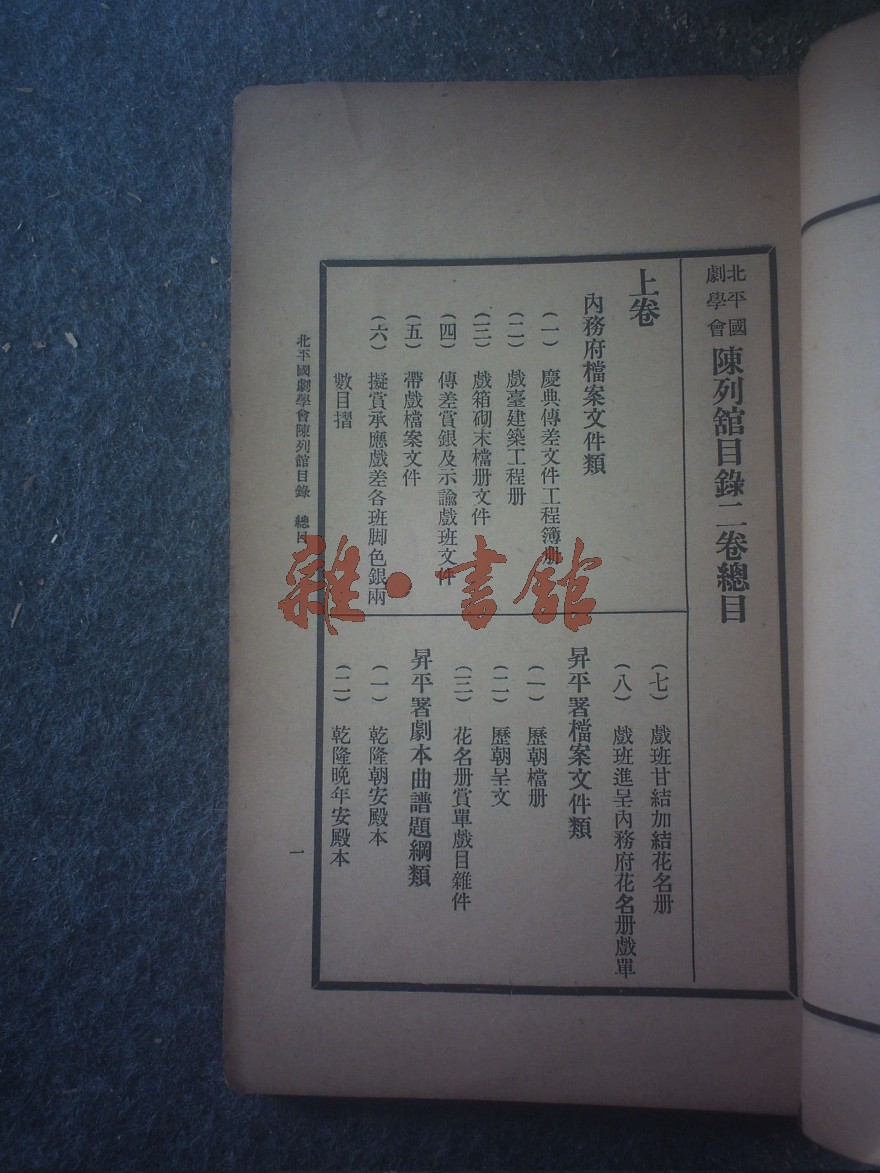 北平國劇學會陳列館目錄二卷總目
上卷
內務府檔案文件類
(一) 慶典傳差文件工程簿册
(二) 戲臺建築工程册
(三) 戲箱砌末檔册文件
(四) 傳差賞銀及示諭戲班文件
(五) 帶戲檔案文件
(六) 擬賞承應戲差各班脚色銀兩
數目摺
(七) 戲班甘結加結花名册
(八) 戲班進呈內務府花名册戲單
昇平署檔案文件類
(一) 歷朝檔册
(二) 歷朝呈文
(三) 花名册賞單戲目雜件
昇平署劇本曲譜題綱類
(一) 乾隆朝安殿本
(二) 乾隆晚年安殿本
北平國劇學會陳列館目錄 總目
一
雜·書館